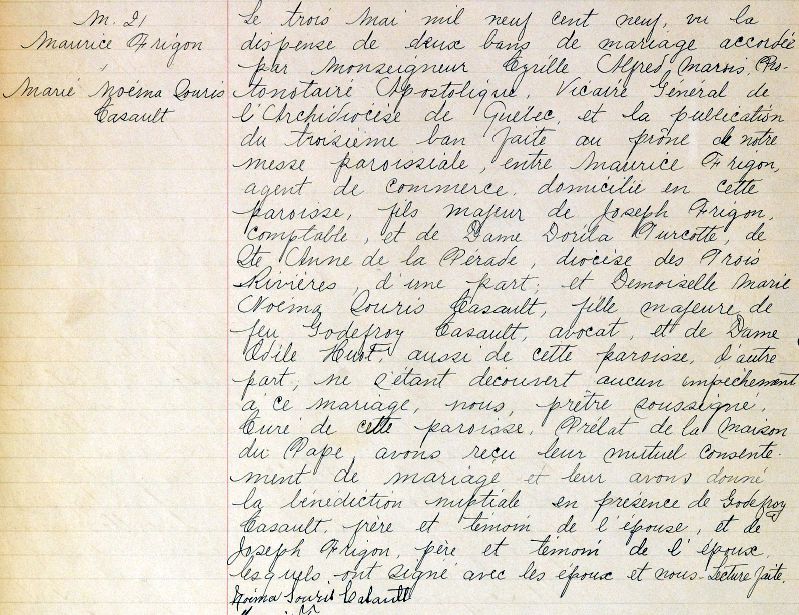 M. 21
Maurice Frigon
Marie Noëma Souris
Casault
Le trois Mai mil neuf cent neuf, vu la
dispense de deux bans de mariage accordée
par Monseigneur Cyrille Alfred Marois, Pro-
tonotaire Apostolique, Vicaire Général de
l'Archidiocèse de Québec, et la publication
du troisième ban faite au prône de notre
messe paroissiale, entre Maurice Frigon,
agent de commerce, domicilié en cette
paroisse, fils majeur de Joseph Frigon,
comptable, et de Dame Dorila Turcotte, de
Ste Anne de la Pérade, diocèse des Trois
Rivières, d'une part; et Demoiselle Marie
Noëma Souris Casault, fille majeure de
feu Godefroy Casault, avocat, et de Dame
Odile Huot, aussi de cette paroisse, d'autre
part, ne s'étant découvert aucun empêchement
à ce mariage, nous, prêtre soussigné,
Curé de cette paroisse, Prélat de la Maison
du Pape, avons reçu leur mutuel consente-
ment de mariage et leur avons donné
la bénédiction nuptiale en présence de Godefroy
Casault, frère et témoin de l'épouse, et de
Joseph Frigon, père et témoin de l'époux,
lesquels ont signé avec les époux et nous. Lecture faite.
Noëma Souris Casault